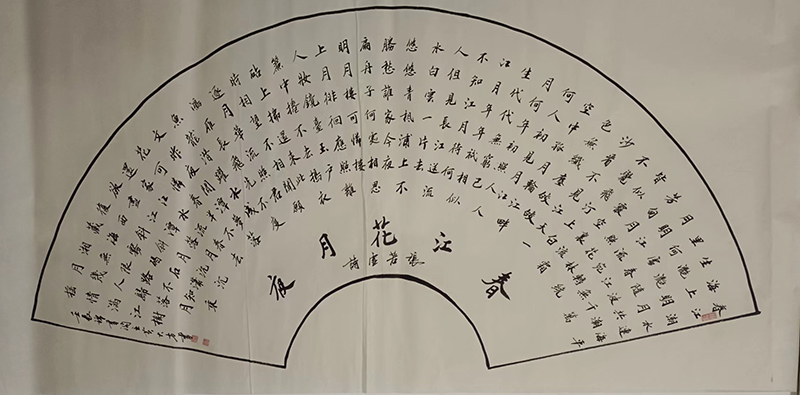 春江潮水連海平
海上明月共潮
生灩灩隨波千萬
里何處春江無
月明江流宛轉遶
芳甸月照花林
皆似霰空裏流霜
不覺飛汀上白
沙看不見江天一
色無纖塵皎皎
空中孤月輪江畔
何人初見月江
月何年初照人人
生代代無窮已
江月年年祇相似
不知江月待何
人但見長江送流
水白雲一片去
悠悠青楓浦上不
勝愁誰家今夜
扁舟子何處相思
明月樓可憐樓
上月徘徊應照離
人妝鏡臺玉戶
簾中捲不去擣衣
砧上拂還來此
時相望不相聞願
逐月華流照君
鴻雁長飛光不度
魚龍潛躍水成
文昨夜閑潭夢落
花可憐春半不
還家江水流春去
欲盡江潭落月
復西斜斜月沉沉
藏海霧碣石瀟
湘無限路不知乘
月幾人歸落月
搖情滿江樹
春江花月夜
張若虛詩